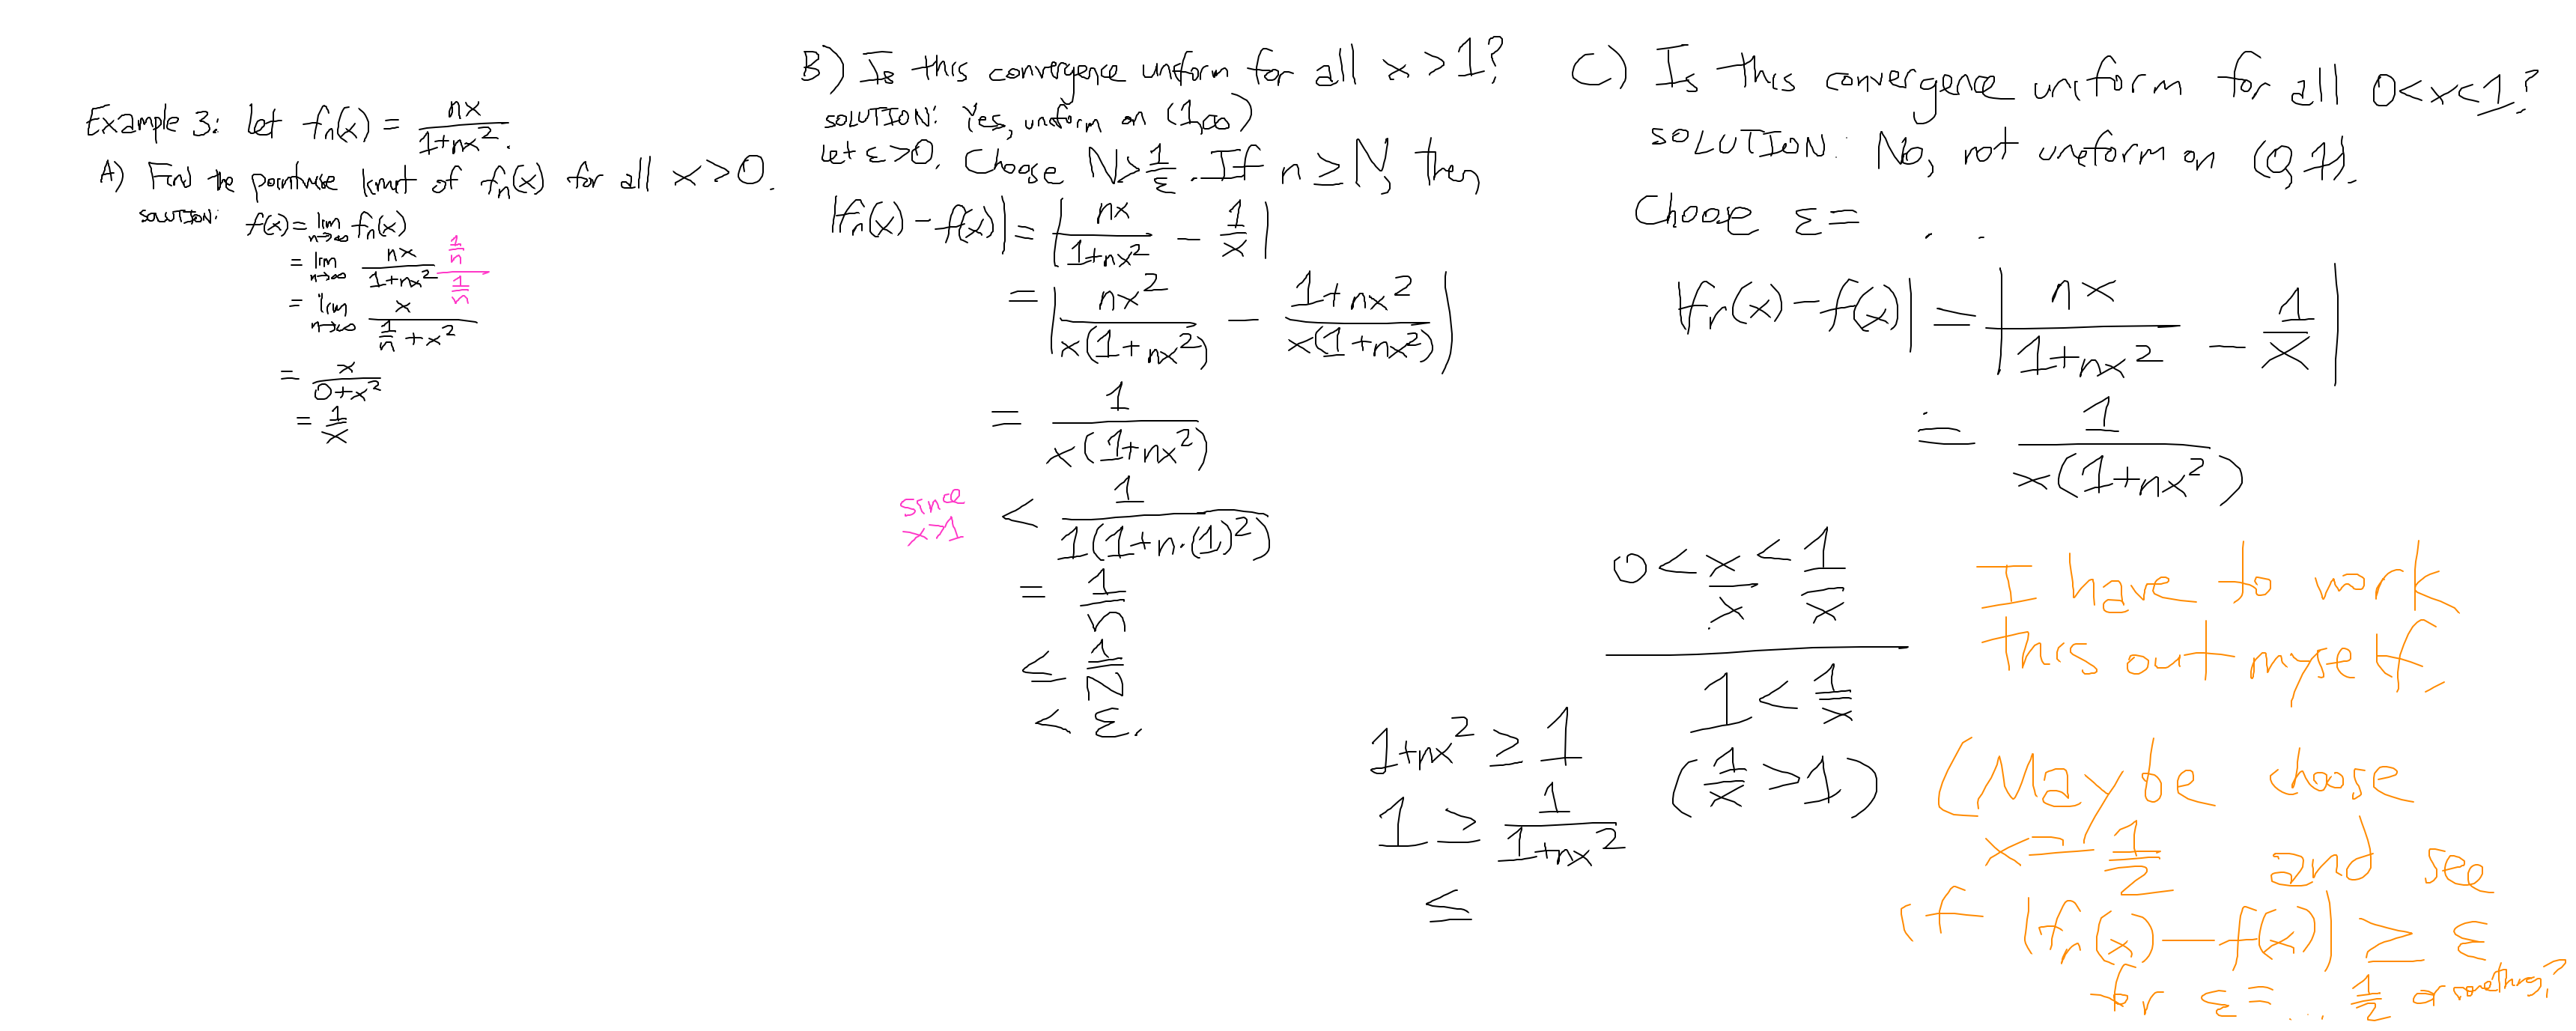 Example 3: Let fₙ(x) = nx/(1+nx²).
A) Find the pointwise limit of fₙ(x) for all x>0.
SOLUTION: f(x) = lim_{n→∞} fₙ(x)
= lim_{n→∞} nx/(1+nx²) (1/n)/(1/n)
= lim_{n→∞} x/(1/n + x²)
= x/(0+x²)
= 1/x
B) Is this convergence uniform for all x>1?
SOLUTION: Yes, uniform on (1,∞)
Let ε>0. Choose N>1/ε. If n≥N, then
|fₙ(x) − f(x)| = |nx/(1+nx²) − 1/x|
= |nx²/(x(1+nx²)) − (1+nx²)/(x(1+nx²))|
= 1/(x(1+nx²))
since x>1 < 1/(1(1+n·(1)²))
= 1/n
≤ 1/N
< ε.
C) Is this convergence uniform for all 0<x<1?
SOLUTION: No, not uniform on (0,1).
Choose ε= . .
|fₙ(x) − f(x)| = |nx/(1+nx²) − 1/x|
= 1/(x(1+nx²))
0 < x/x < 1/x
1 < 1/x
(1/x > 1)
1+nx² ≥ 1
1 ≥ 1/(1+nx²)
≤
I have to work
this out myself.
(Maybe choose
x = 1/2 and see
if |fₙ(x) − f(x)| ≥ ε
for ε = ... 1/2 or something?